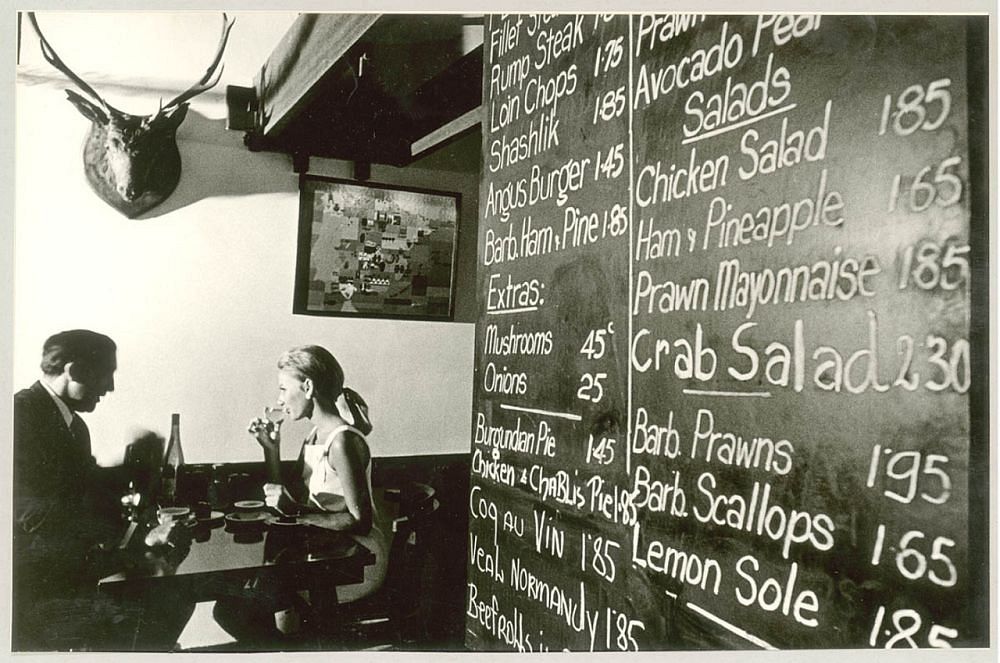 Fillet Steak
Rump Steak 1·75
Loin Chops 1·85
Shashlik
Angus Burger 1·45
Barb. Ham & Pine 1·85
Extras:
Mushrooms 45c
Onions 25
Burgundian Pie 1·45
Chicken & CHABLis Pie 1·85
COQ AU VIN 1'85
VEAL NORMANDY 1'85
Beefrolls
Prawn
Avocado Pear
Salads
Chicken Salad 1·85
Ham & Pineapple 1·65
Prawn Mayonnaise 1·85
Crab Salad 2·30
Barb. Prawns 1·95
Barb. Scallops 1·65
Lemon Sole 1·85